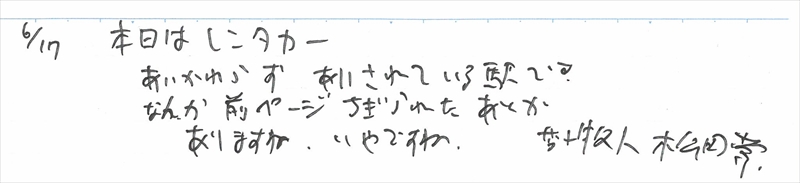 6/17 本日はレンタカー
あいかわらず あいされている駅です。
なんか前ページ ちぎられたあとが
ありますね。いやですね。 管理人